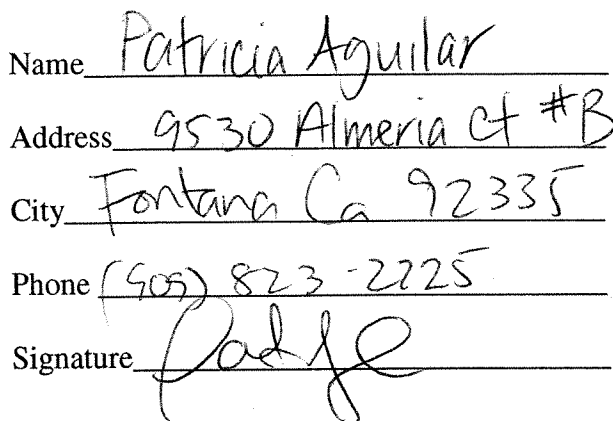 Name Patricia Aguilar
Address 9530 Almeria Ct #B
City Fontana Ca 92335
Phone (909) 823-2225
Signature